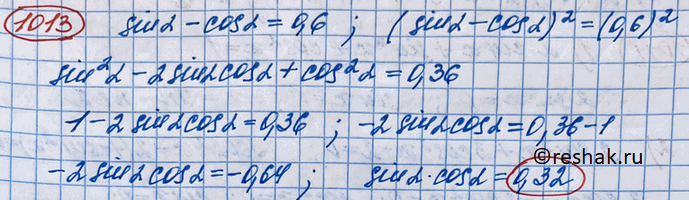 1013 sinα - cosα = 0,6 ; (sinα - cosα)² = (0,6)²
sin²α - 2sinαcosα + cos²α = 0,36
1 - 2sinαcosα = 0,36 ; -2sinαcosα = 0,36 - 1
-2sinαcosα = -0,64 ; sinα·cosα = 0,32
©reshak.ru